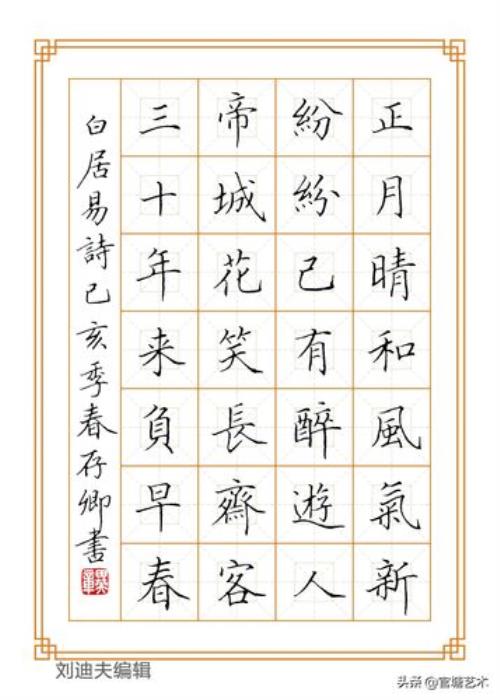 正月晴和風氣新
紛紛已有醉遊人
帝城花笑長齋客
三十年来負早春
白居易詩己亥季春存卿書
刘迪夫编辑
头条@官塘艺术